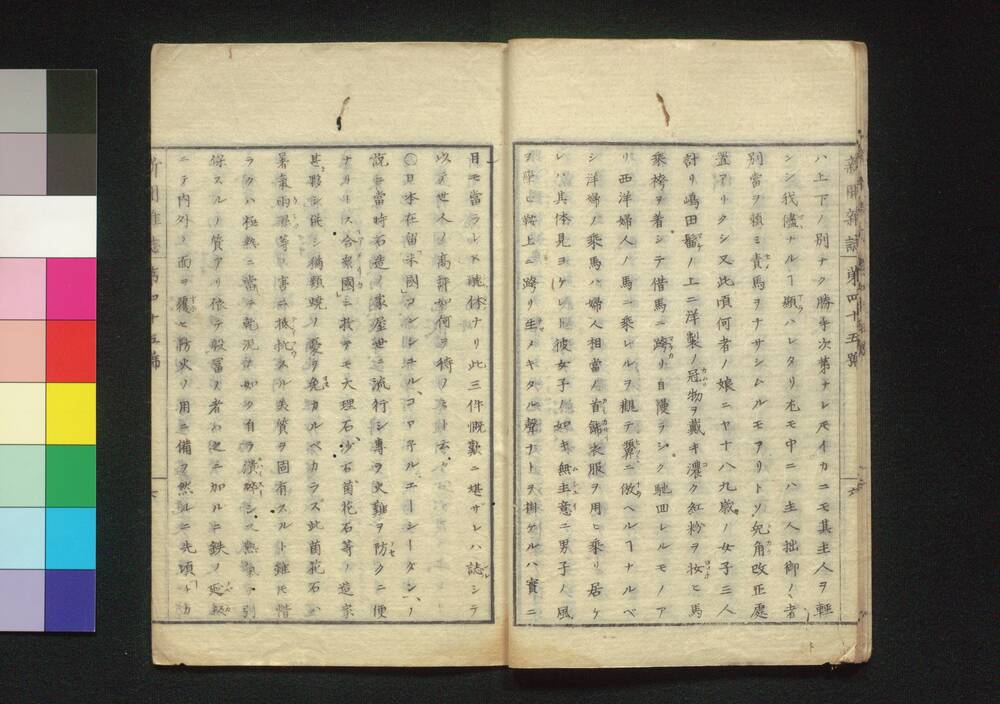 新聞雑誌 第四十五號
ハ上下ノ別ナク勝手次第ナレ𪜈イカニモ其主人ヲ輕
ンシ我儘ナルヿ顯ハレタリ尤モ中ニハ主人拙御ノ者
別當ヲ頼ミ責馬ヲナサシムルモアリト
置アリタシ又此頃何者ノ娘ニヤ十八九歳ノ女子三人
計リ嶋田髷ノ上ニ洋製ノ冠物ヲ戴キ濃ク紅粉ヲ妝ヒ馬
乗袴ヲ着シテ借馬ニ跨リ自慢ラシク馳回レルモノア
リ西洋婦人ノ馬ニ乗レルヲ觀テ
シ洋婦ノ乗馬ハ婦人相當ノ首餝衣服ヲ用ヒ乗リ居ケ
レハ其体見ヨケレ𪜈彼女子ノ如キ無主意ニ男子ノ風
鞍上ニ跨リ生メキタル聲ナトヲ掛ケルハ實ニ
目モ當ラレヌ醜体ナリ此三件慨歎ニ堪サレハ誌シテ
以テ世人ノ高評如何ヲ待ツノミト云
○日本在留米國コンシユル
説ニ當時石造ノ家屋世ニ流行シ專ラ火難ヲ防クニ便
ナリトス合衆國ニ於テモ大理石砂石茵花石等ノ造家
甚夥シ併シ猶類焼ノ憂ヲ免カルベカラズ此茵花石ハ
暑氣雨濕等ノ害ニ抵抗スル美質ヲ固有スルト雖𪜈惜
ラクハ極熱ニ當テ乾泥ノ如ク有ラ
保スルノ質アリ依テ殷富ノ者ハ之ニ加ルニ鉄ノ延板
ニテ内外ノ面ヲ覆ヒ防火ノ用ニ備ヲ然ルニ先頃